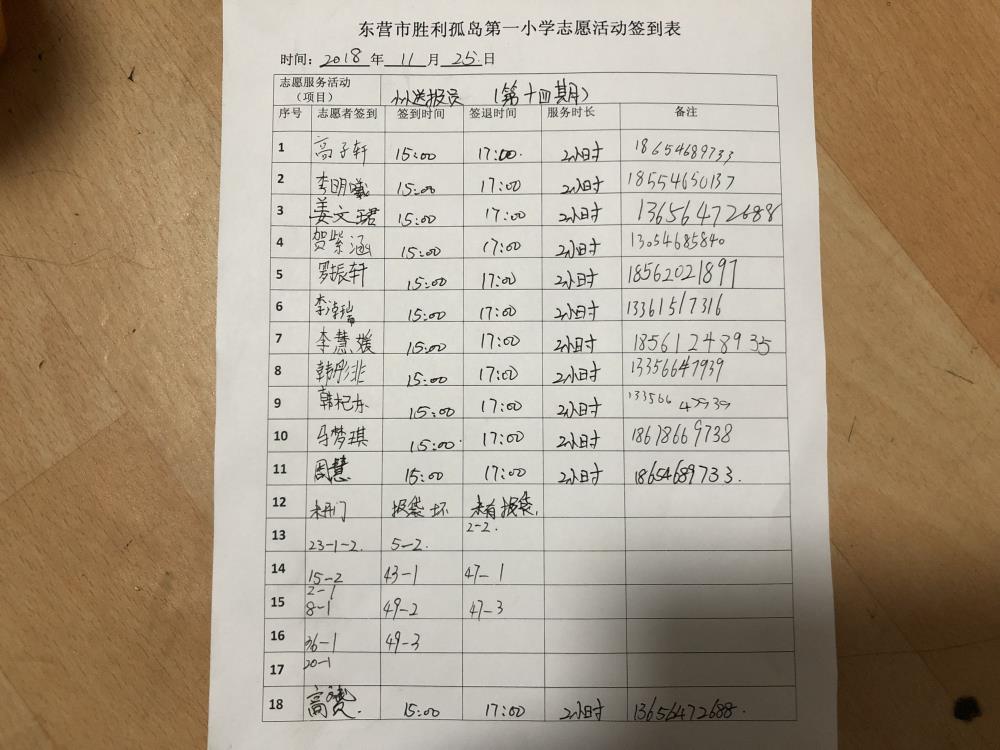 东营市胜利孤岛第一小学志愿活动签到表
时间：2018 年 11 月 25 日
志愿服务活动（项目） 小小送报员 （第十四期）
序号 志愿者签到 签到时间 签退时间 服务时长 备注
1 高子轩 15:00 17:00. 2小时 18654689733
2 李明曦 15:00 17:00 2小时 18554650137
3 姜文珺 15:00 17:00 2小时 13656472688
4 贺紫涵 15:00 17:00 2小时 13054685840
5 罗振轩 15:00 17:00 2小时 18562021897
6 李淖瑞 15:00 17:00 2小时 13361517316
7 李慧媛 15:00 17:00 2小时 18561248935
8 韩彤非 15:00 17:00 2小时 13356647939
9 韩杞东 15:00 17:00 2小时 13356647939
10 马梦琪 15:00 17:00 2小时 18678669738
11 周慧 15:00 17:00 2小时 18654689733.
12 未开门 报袋坏 未有报袋.
13 23-1-2. 5-2. 2-2.
14 15-2 43-1 47-1
2-1
15 8-1 49-2 47-3
16 36-1 49-3
17 20-1
18 高 15:00 17:00 2小时 13656472688.